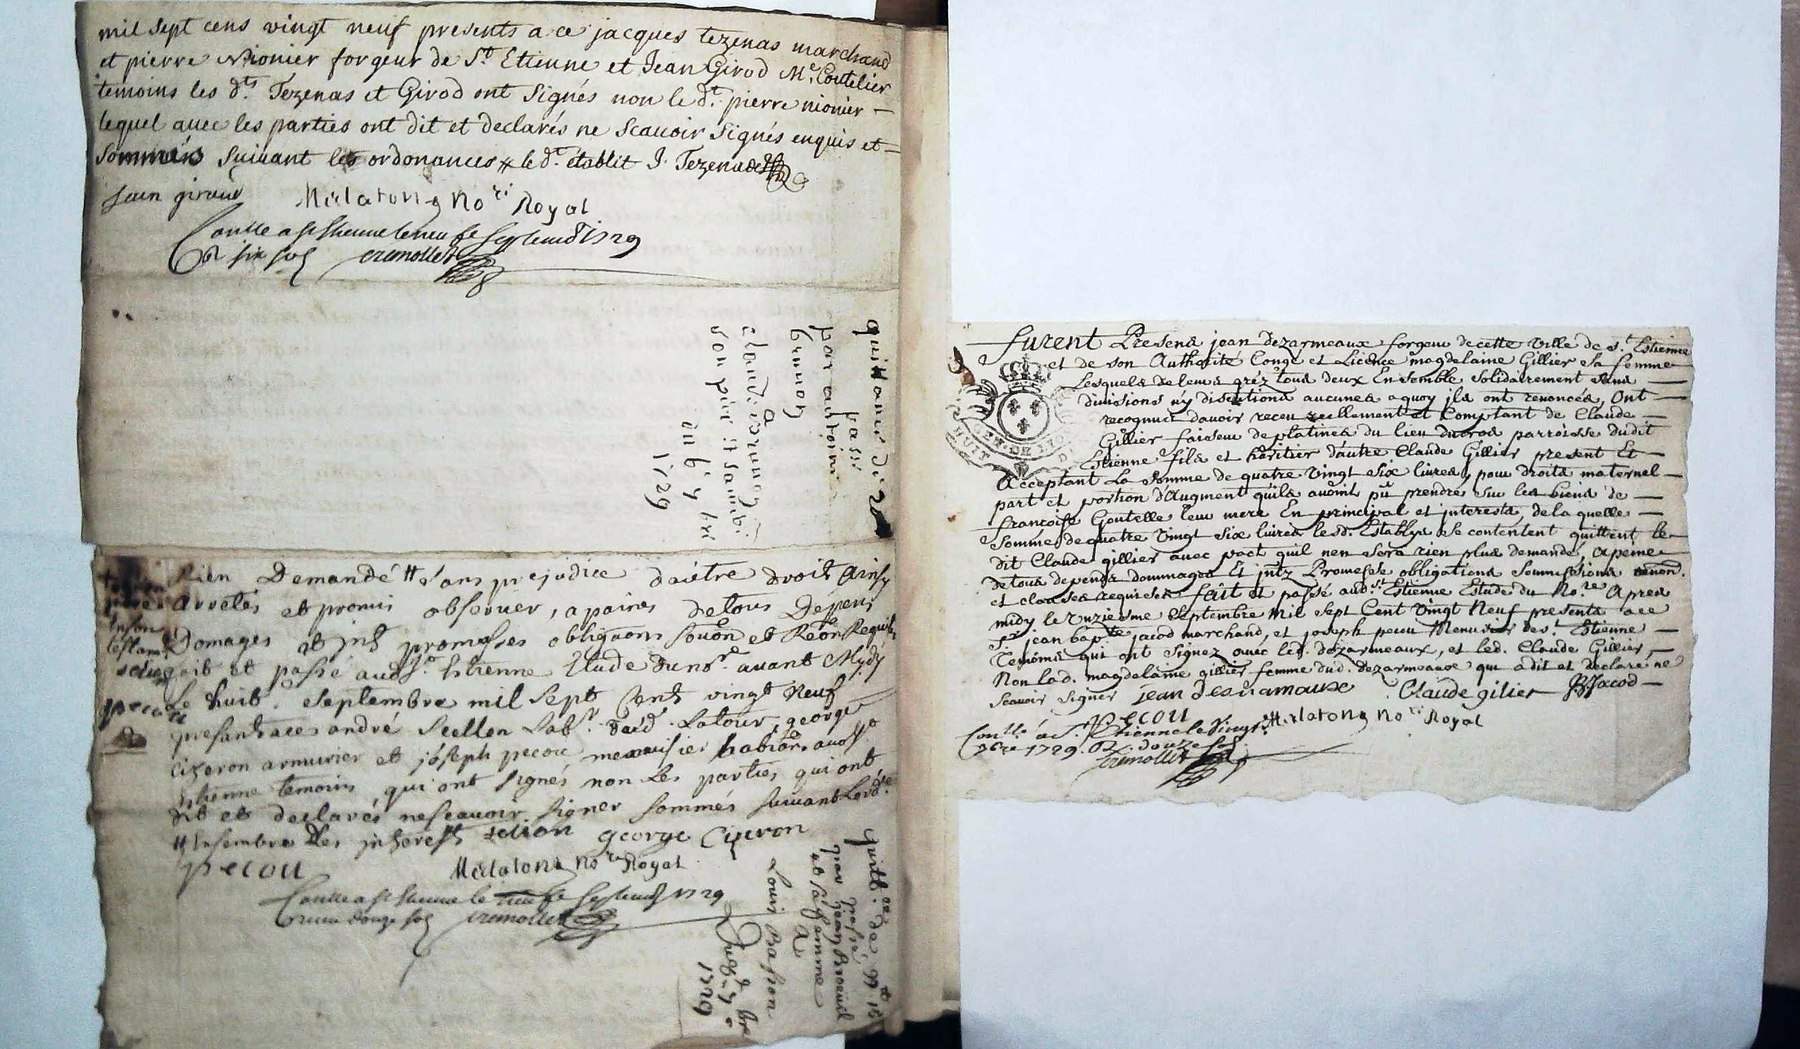 mil sept cens vingt neuf presents a ce jacques tezenas marchand
et pierre nionier forgeur de St. Etienne et Jean Girod Me. Coutelier
temoins les dts. Tezenas et Girod ont Signés non le dt. pierre nionier
lequel avec les parties ont dit et declarés ne Scavoir Signés enquis et
sommés suivant les ordonances # le dt. établit J. Tezenas
jean giraud Merlatong nore Royal
Conlle a st Etienne le neufe Septemb 1729
six sols cremollet
quittance de
passé
par antoine
a
claude
du 6 7bre
1729
Rien Demandé # sans prejudice dautre droits Ainsy
arretés et promis observer, a paines de tous Depens
Domages et intz promesses obligaons soumon et Reon Requis
fait et passé audt St. Estienne Etude du nore. avant Mydy
Le huit. septembre mil sept Cents vingt Neuf
presants a ce andré Seillon Labr. dud. Latour, george
Cizeron armurier et joseph pecou menuisier habitans audt. St
Estienne temoins qui ont signés non Les parties qui ont
dit et declarés ne scavoir signer sommés suivant Lordce.
# Ensembre Les interests sellon george Cizeron
pecou Merlatong nore Royal
Conlle a st Etienne le neufe Septemb 1729
Receu douze sols cremollet
quittce. de 99 lt 15
passé
par jean
et sa femme
a
Louis Bastion
du 8 7bre
1729
Furent Presens jean dezarmeaux forgeur de cette ville de st. Estienne
et de son Authorité Congé et Licence magdelaine Gillier sa femme
Lesquels de leurs grez tous deux Ensemble solidairement sans
divisions ny discutions aucunes aquoy ils ont renoncés, Ont
recognut davoir receu reellement et Comptant de Claude
Gillier faiseur de platines du lieu ducros parroisse dudit
Estienne fils et heritier dautre Claude Gillier present Et
Acceptant La somme de quatre vingt six livres, pour droits maternel
part et portion d'Augment quils avoint pû prendre sur les biens de
francoise Goutelle leur mere En principal et interests, de la quelle
somme de quatre vingt six livres lesd. Establys se contentent quittent le
dit Claude gillier avec pact quil nen sera rien plus demande, apeine
de tous depens dommages Et intz Promesses obligations soumissions renon.
et clauses requises fait et passé aud. st. Estienne Estude du Nore. Apres
midy le onzieme Septembre mil sept Cent Vingt Neuf presents a ce
sr jean bapte jacod marchand, et joseph pecou Menuisier de st. Estienne
Temoins qui ont signez avec led. dezarmeaux, et led. Claude Gillier,
Non lad. magdelaine gillier femme dud. dezarmeaux qui a dit et declare ne
scavoir signer jean desarmaux Claude gilier JB Jacod
pecou Merlatong nore Royal
Conlle á st. Etienne le vingt
7bre 1729. R. douze sols
cremollet